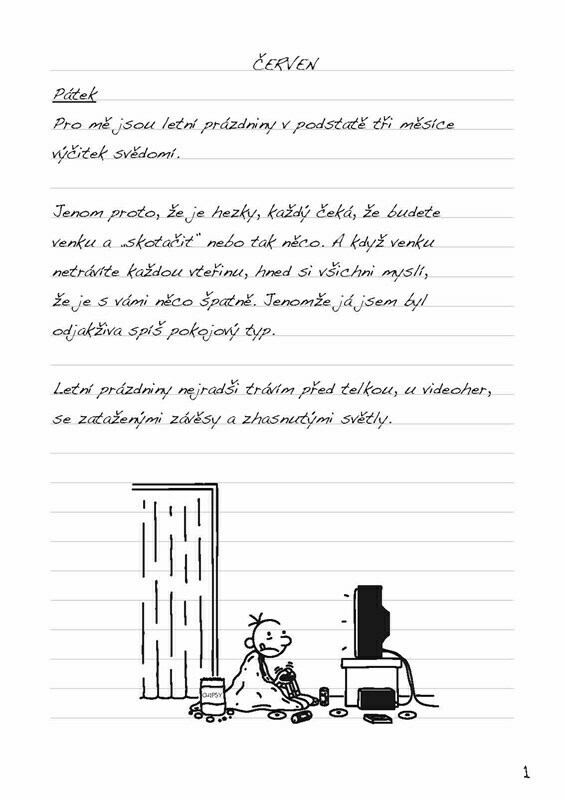 ČERVEN
Pátek
Pro mě jsou letní prázdniny v podstatě tři měsíce
výčitek svědomí.
Jenom proto, že je hezky, každý čeká, že budete
venku a „skotačit“ nebo tak něco. A když venku
netrávíte každou vteřinu, hned si všichni myslí,
že je s vámi něco špatně. Jenomže já jsem byl
odjakživa spíš pokojový typ.
Letní prázdniny nejradši trávím před telkou, u videoher,
se zataženými závěsy a zhasnutými světly.
CHIPSY
1